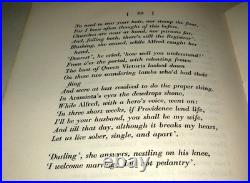 ( 59 )
No need to tear your hair, nor stamp the floor,
For I have often thought of this before.
Churches are near at hand, nor parsons far,
And, failing both, there's still the Registrar.'
Blushing, she ceased, while Alfred caught her
hand,
'Dearest', he cried, 'how well you understand!'
From o'er the portal, with relenting frown,
The bust of Queen Victoria looked down
On these two wandering lambs who'd had their
fling
And were at last resolved to do the proper thing.
In Araminta's eyes the dewdrops shone,
While Alfred, with a hero's voice, went on:
'In three short weeks, if Providence lend life,
I'll be your husband, you shall be my wife,
And till that day, although it breaks my heart,
Let us live sober, single, and apart'.
'Darling', she answers, nestling on his knee,
'I welcome marriage, pedantry'.
vetdepot.com